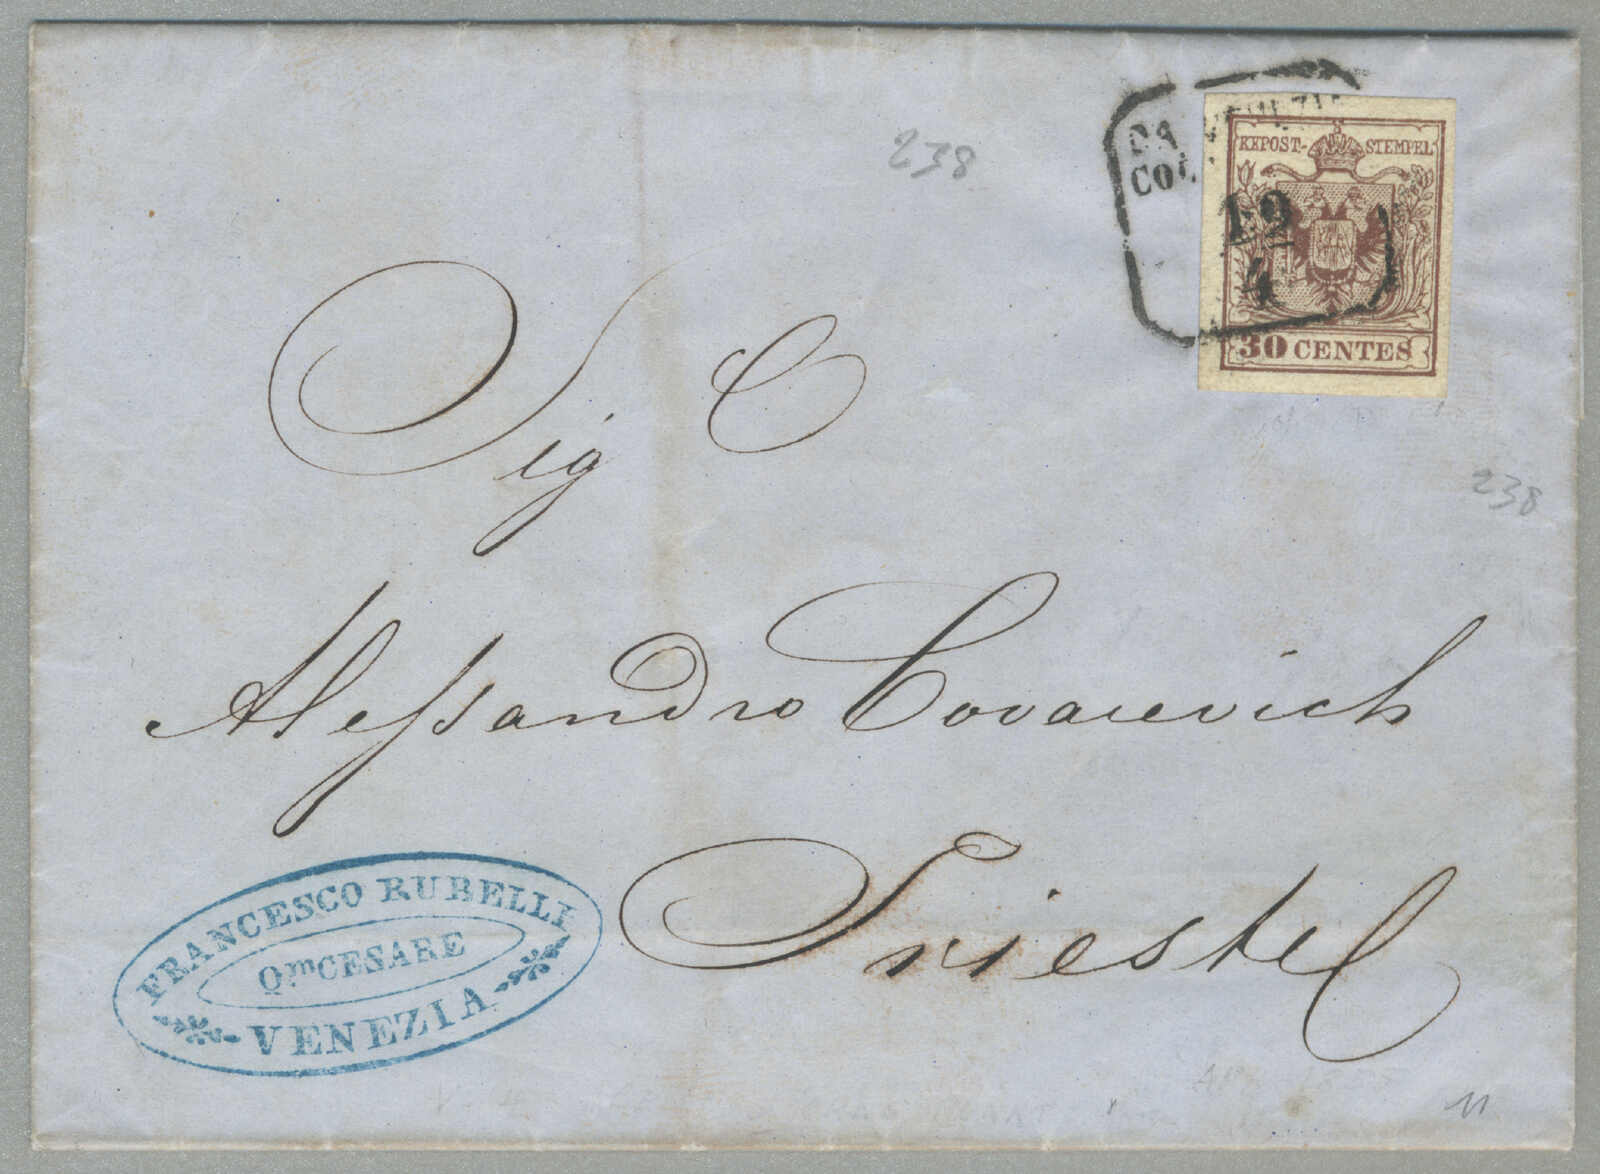 238
KKPOST-STEMPEL
DA VENEZIA
COL
19
4
30 CENTES
238
Sig C
Alessandro Covacevich
Trieste
FRANCESCO RUBELLI
Qm CESARE
VENEZIA
11